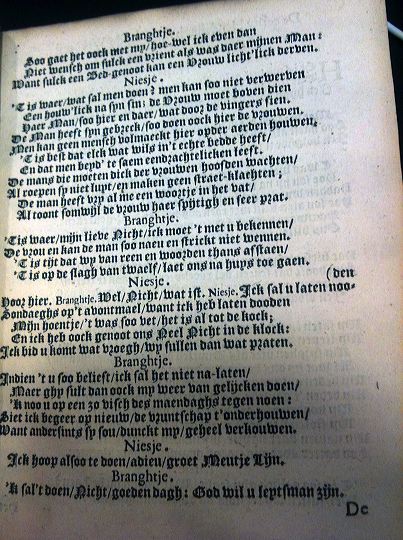 Branghtje.
Soo gaet het oock met my/hoe-wel ick even dan
Niet wensch om sulck een vrient als was daer mijnen Man:
Want sulck een Bed-genoot kan een Vrouw licht'lick derven.
Niesje.
'Tis waer/wat sal men doen? men kan soo niet verwerven
Een houw'lick na syn sin: de Vrouw moet boven dien
Haer Man/soo hier en daer/wat door de vingers sien.
De Man heeft syn gebreck/soo doen oock hier de vrouwen.
Men kan geen mensch volmaeckt hier opder aerden houwen;
'Tis best dat elck wat wils in't echte bedde heeft/
En dat men beyd' te saem eendrachtelicken leeft.
De mans die moeten dick der vrouwen hoofden wachten/
Al roepen sy niet lupt/en maken geen straet-klachten;
De man heeft vry al me een woortje in het vat/
Al toont somwijl de vrouw haer spytigh en seer prat.
Branghtje.
'Tis waer/mijn lieve Nicht/ick moet 't met u bekennen/
De vrou en kan de man soo naeu en strickt niet wennen.
'Tis tijt dat wy van reen en woorden thans afstaen/
'Tis op de slagh van twaelf/laet ons na huys toe gaen.
Niesje. (den
Voor hier. Branghtje. Wel/Nicht/wat ist. Niesje. Ick sal u laten noo-
Sondaeghs op't avontmael/want ick heb laten dooden
Mijn hoentje/'t was soo vet/her is al tot de kock;
En ick heb oock genoot ons Neel Nicht in de klock:
Ick bid u komt wat vroegh/wy sullen dan wat praten.
Branghtje.
Indien 't u soo belieft/ick sal het niet na-laten/
Maer ghy sult dan oock my weer van gelijcken doen/
'k noo u op een zo visch des maendaghs tegen noen:
Siet ick begeer op nieuw/de vruntschap t'onderhouwen/
Want andersints sy sou/dunckt my/geheel verkouwen.
Niesje.
Ick hoop alsoo te doen/adieu/groet Meutje Lijn.
Branghtje.
'K sal't doen/Nicht/goeden dagh: God wil u leytsman zijn.
De